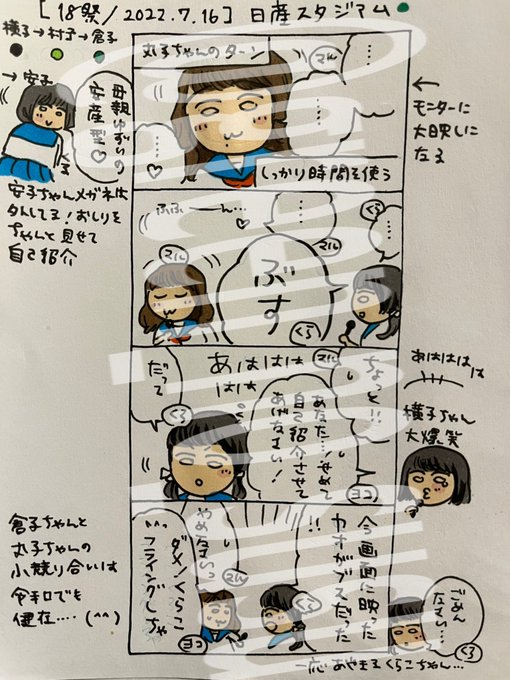 [18祭/2022.7.16] 日産スタジアム
横子→村子→倉子
→安子
母親ゆずりの
安産型♡
くる
安子ちゃんメガネは
外してる!おしりを
ちゃんと見せて
自己紹介
丸子ちゃんのターン
マル
……
……
……♡
しっかり時間を使う
←
モニターに
大映しに
なる
くら
……
ふふーーん…♡
マル
ぶす
くら
ちょっと!!
マル
あははは
はは
あなた…!せめて
自己紹介させて
あげなさい!
ヨコ
だって
くら
あはははは
横子ちゃん
大爆笑
今画面に映った
カオがブスだった
!!
くら
やめなさいっ
マル
ダメ!くらこ
フライングしちゃ
ヨコ
ごめん
なさい…
くら
一応あやまるくらこちゃん…
倉子ちゃんと
丸子ちゃんの
小競り合いは
令和でも
健在….(^^)